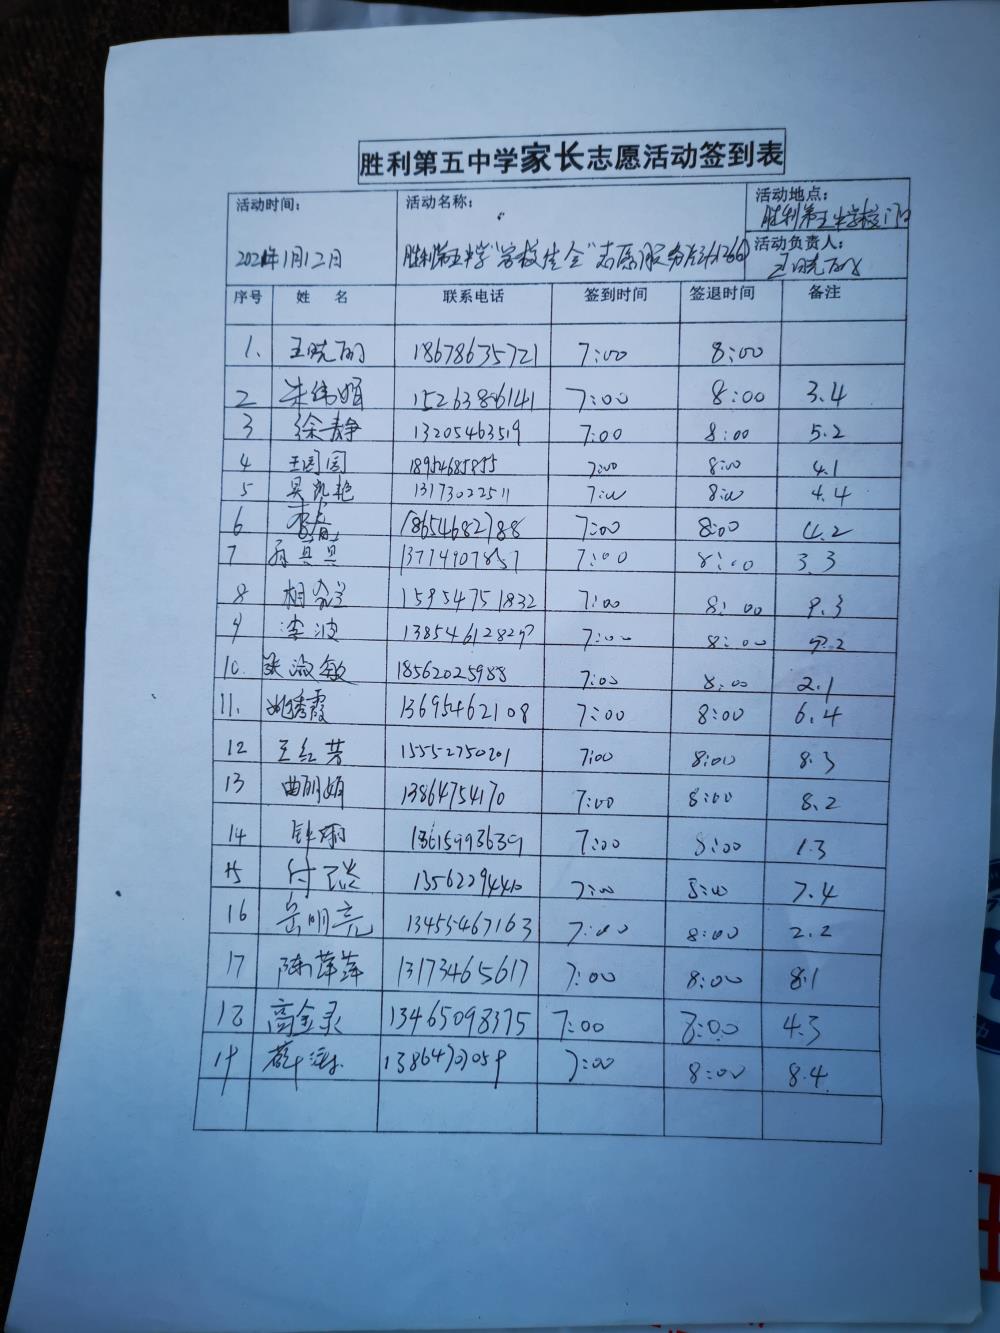 胜利第五中学家长志愿活动签到表
活动时间： 活动名称： 活动地点：
胜利第五中学校门口
2021年1月12日 胜利第五中学"学校安全"志愿服务活动 活动负责人：
王晓丽
序号 姓 名 联系电话 签到时间 签退时间 备注
1. 王晓丽 18678635721 7:00 8:00
2 朱伟娟 15263886141 7:00 8:00 3.4
3 徐静 13205463519 7:00 8:00 5.2
4 王园园 18954685855 7:00 8:00 4.1
5 吴凯艳 13173022511 7:00 8:00 4.4
6 18654682788 7:00 8:00 4.2
7 13714907857 7:00 8:00 3.3
8 15954751832 7:00 8:00 9.3
9 李波 13854612829 7:00 8:00
10. 张淑敏 18562025988 7:00 8:00 2.1
11. 姚秀霞 13695462108 7:00 8:00 6.4
12 王红芳 15552750201 7:00 8:00 8.3
13 曲丽娟 13864754170 7:00 8:00 8.2
14 7:00 8:00 1.3
15 付 13562294410 7:00 8:00 7.4
16 岳明亮 13455467163 7:00 8:00 2.2
17 陈萍萍 13173465617 7:00 8:00 8.1
18 高金录 13465098375 7:00 8:00 4.3
19 薛 7:00 8:00 8.4